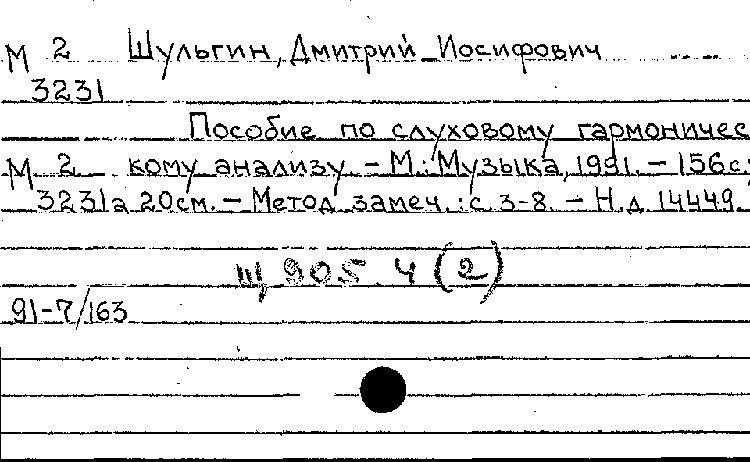 М 2 Шульгин, Дмитрий Иосифович
3231
Пособие по слуховому гармоничес
М 2 кому анализу. – М.: Музыка, 1991. – 156с;
3231а 20см. – Метод. замеч.: с. 3-8. – Н.д. 14449.
Щ 905.4 (2)
91-7/163